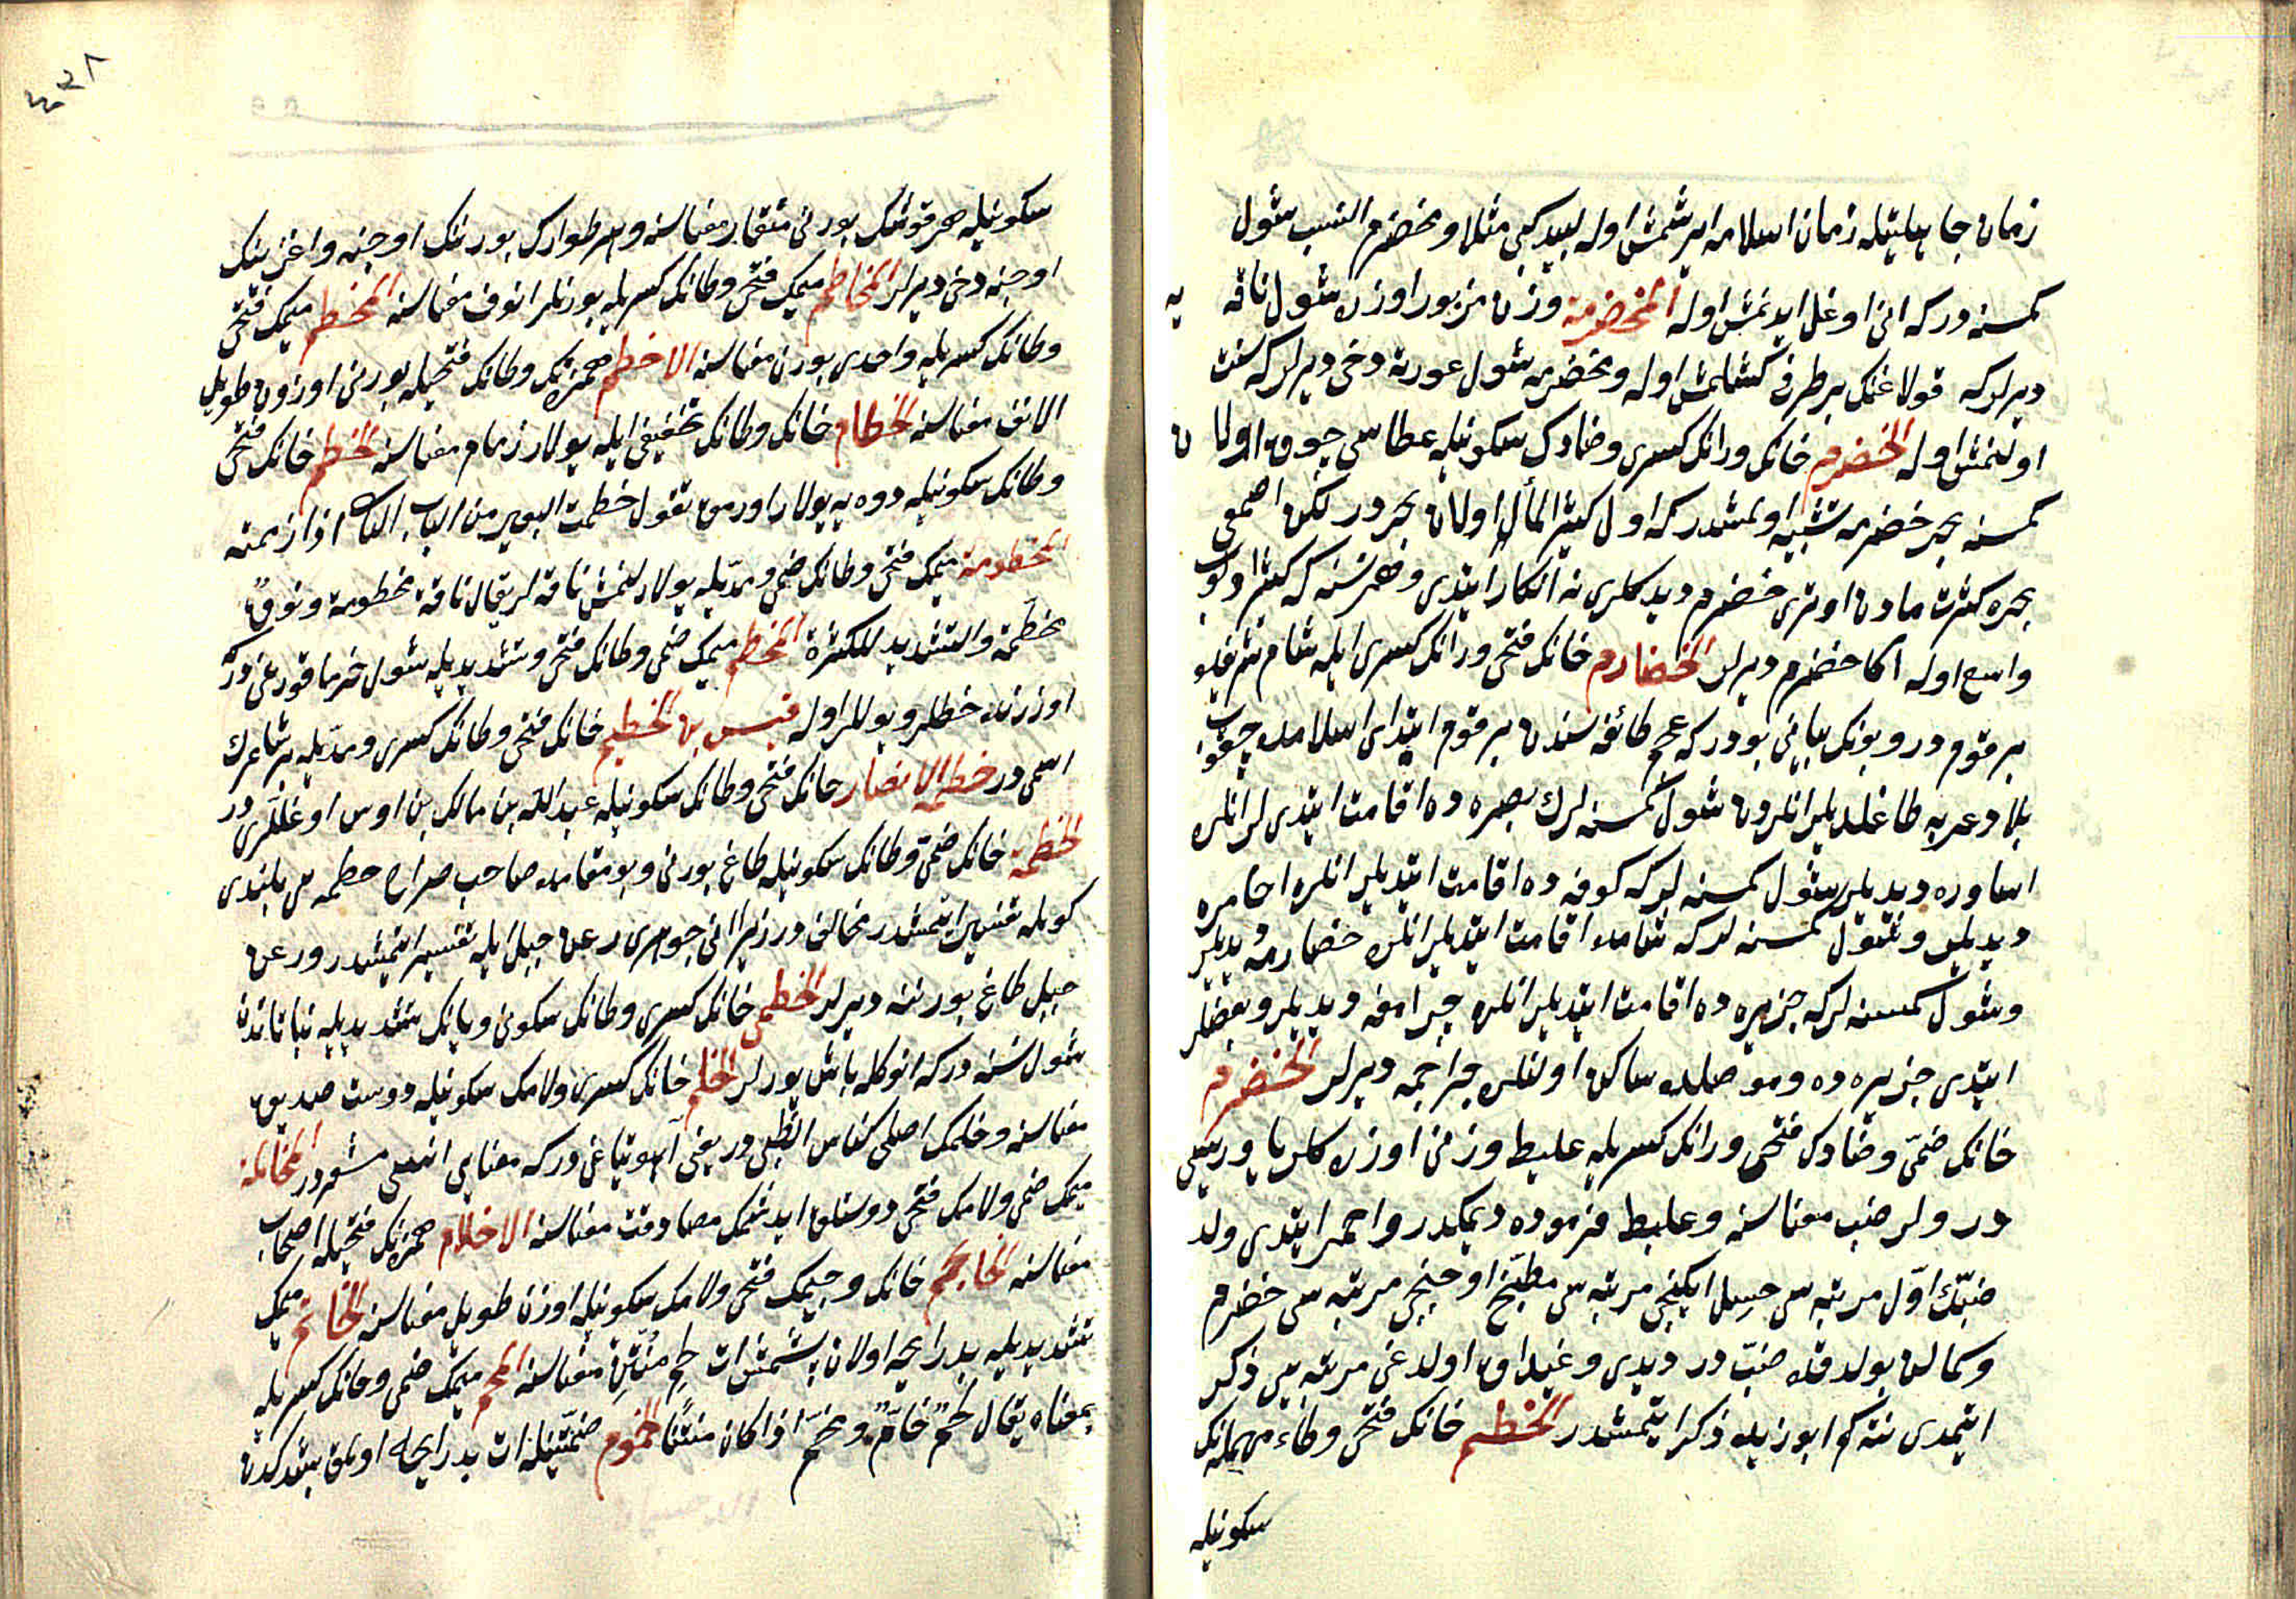 زمان جاهليتله زمان اسلامه ايرشمش اوله لبيد كبى مثلا ومخضرم النسب شول
كمسنه دركه انى اوغل ايدنمش اوله المخضرمة وزن مزبور اوزره شول ناقه يه
ديرلركه قولاغنك بر طرفى كسلمش اوله ومخضرمه شول عورته دخى ديرلركه سنت
اولنمش اوله الخضرم خانك ورانك كسرى وضادك سكونيله عطاسى چوق اولان
كمسنه بحر خضرمه تشبيه اولمشدركه اول كثير المأ اولان بحردر لكن اصمعى
بحره كثرت مادن اوترى خضرم ديدكلرى نه انكار ايتدى وهر نسنه كه كثير اولوب
واسع اوله اكا خضرم ديرلر الخضارم خانك فتحى ورانك كسرى ايله شام شرفيلو
بر قومدر وبونك بيانى بودركه عجم طائفه سندن بر قوم ابتداى اسلامده چيقوب
بلاد عربه طاغلديلر انلردن شول كمسنه لرك بصره ده اقامت ايتدى لر انلره
اساوره ديديلر شول كمسنه لركه كوفه ده اقامت ايتديلر انلره احامره
ديديلر وشول كمسنه لركه شامده اقامت ايتديلر انلره خضارمه ديديلر
وشول كمسنه لركه جزيره ده اقامت ايتديلر انلره جرامقه ديديلر وبعضلر
ايتدى جزيره ده وموصلده ساكن اولنلره جراجمه ديرلر الخضرم
خانك ضمى وضادك فتحى ورانك كسريله عليط وزنى اوزره كلر ياوريسى
در ولد ضب معناسنه وعليط مزبوده ديمكدر واحمر ايتدى ولد
ضبك اول مرتبه سى حسل ايكنجى مرتبه سى مطبخ اوجنجى مرتبه سى خضرم
وكمالن بولدقده ضب در ديدى وغيداق اولدغى مرتبه يى ذكر
ايتمدى نته كم ابو زيد ذكر ايتمشدر الخطم خانك فتحى وطاء مهمله نك
سكونيله
سكونيله هر قوشك بورنى منقار معناسنه وهر طوارك بورننك اوجنه واغزينك
اوجنه دخى ديرلر المخاطم ميمك فتحى وطانك كسريله بورنلر انوف معناسنه المخطم ميمك فتحى
وطانك كسريله واحدى بورن معناسنه الاخطم همزه نك وطانك فتحيله بورنى اوزون طويل
الانف معناسنه الخطام خانك وطانك تخفيفى ايله يولار زمام معناسنه الخطم خانك فتحى
وطانك سكونيله دوه يه يولار اورمق تقول خطمت البعير من الباب الثانى اذا زممته
المخطومة ميمك فتحى وطانك ضمى ومديله يولارلنمش ناقه لر يقال ناقة مخطومة ونوق
مخطمة والتشديد للكثرة المخطم ميمك ضمى وطانك فتحى وتشديديله شول خرما قوريغى دركه
اوزرنده خطلر ويوللر اوله قيس بن الخطيم خانك فتحى وطانك كسرى ومديله بر شاعرك
اسمى در خطمه الانصار خانك فتحى وطانك سكونيله عبد الله بن مالك بن اوس اوغللرى در
الخطمة خانك ضمى وطانك سكونيله طاغ بورنى وبو مقامده صاحب صراح خطمه يى بلندى
كوه له تفسير ايتمشدر مخالفدر زيرا انى جوهرى رعن جبل ايله تفسير ايتمشدر ورعن
جبل طاغ بورننه ديرلر الخطمى خانك كسرى وطانك سكونى ويانك تشديديله نباتاتدن
شول نسنه دركه انوكله باش يورلر الخلم خانك كسرى ولامك سكونيله دوست صديق
معناسنه وخلمك اصلى كناس الظبى در يعنى آهو يتاغى دركه معناسى اتنعى مشهوردر المخالمة
ميمك ضمى ولامك فتحى دوستلق ايدشمك مصادقت معناسنه الاخلام همزه نك فتحيله اصحاب
معناسنه الخلجم خانك وجيمك فتحى ولامك سكونيله اوزن طويل معناسنه الخام ميمك
تشديديله بدرايحه اولان پشمش ات لحم منتن معناسنه المخم ميمك ضمى وخانك كسريله
بمعناه يقال لحم خام ومخم اذا كان منتنا الخموم ضمتينله ات بدرايحه اولمق پشدكدن